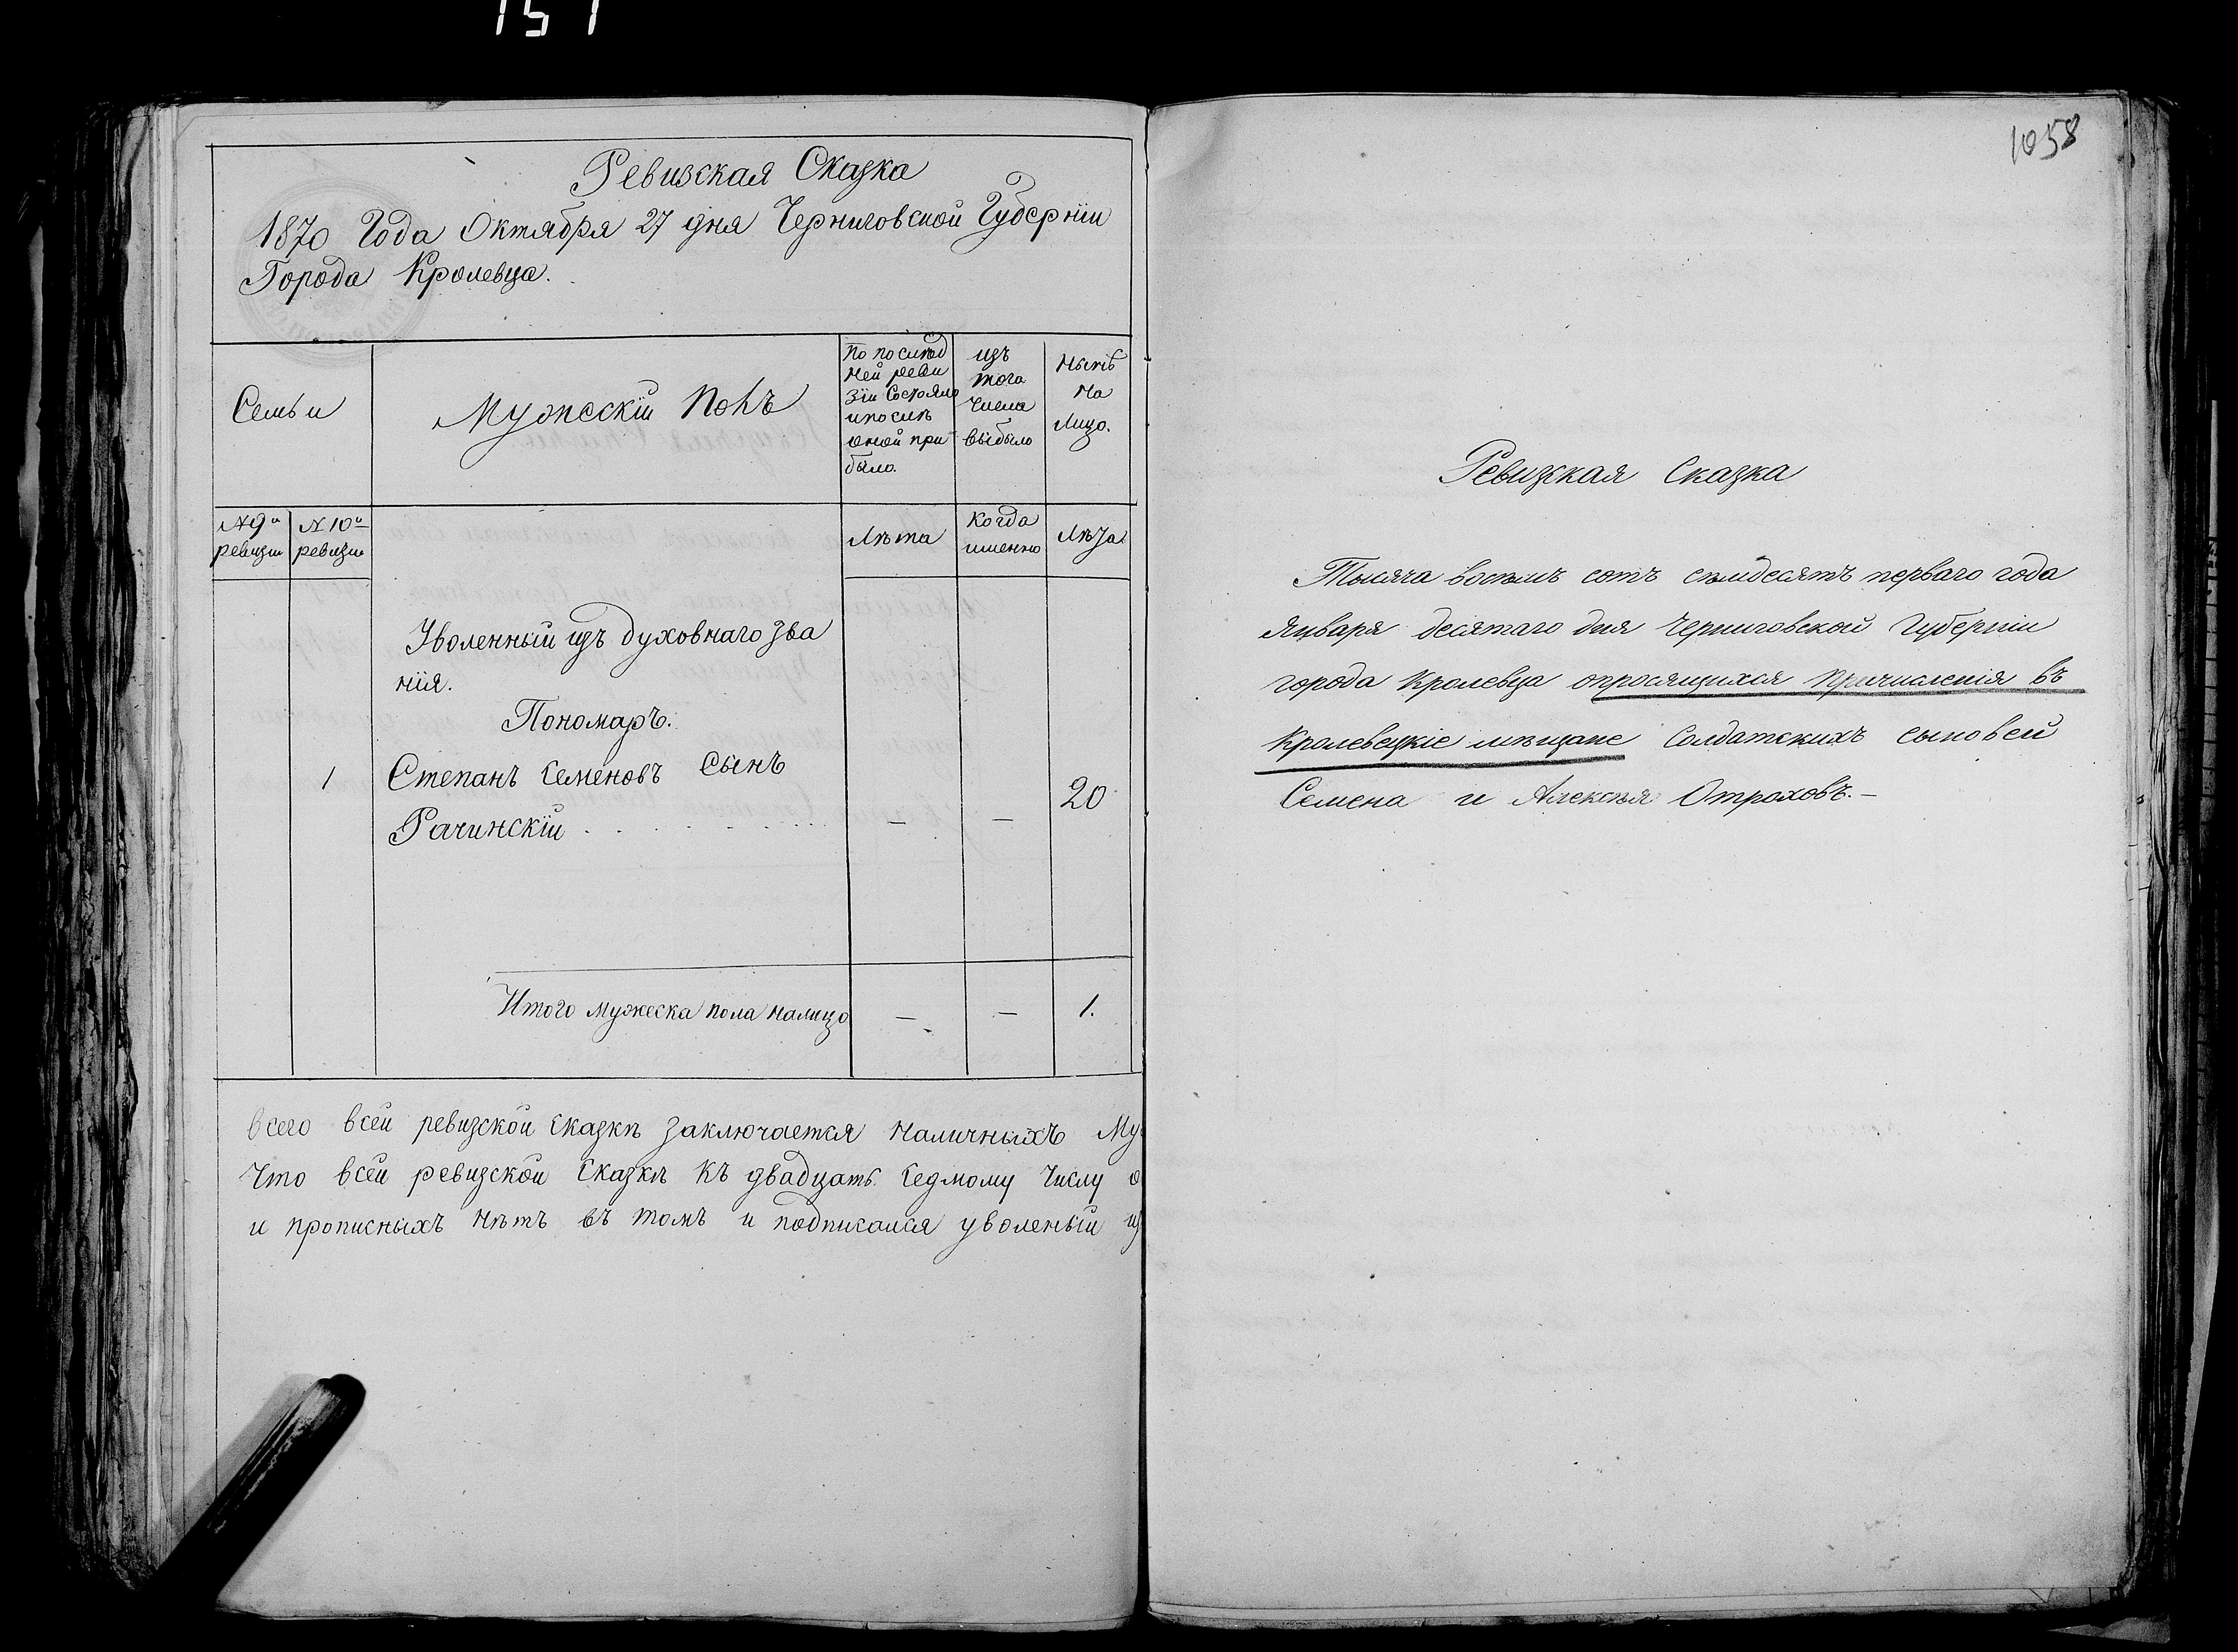 151
Ревизская Сказка
1870 Года Октября 27 дня Черниговской Губерніи
Города Кролевца.
Семьи
Мужескій Полъ
По послѣд
ней реви
зіи Состояло
и послѣ
оной при
было.
изъ
того
числа
выбыло
Нынѣ
На
Лицо.
№ 9й
ревизіи
№ 10й
ревизіи
Лѣта
Когда
именно
Лѣта
Уволенный изъ духовнаго зва
нія.
Пономарь.
1 Степанъ Семеновъ Сынъ
Рачинскій . . . . . . . . — — 20
Итого мужеска пола налицо — — 1.
Всего всей ревизской Сказкѣ заключается наличныхъ Му
Что всей ревизской Сказкѣ къ двадцать седмому Числу о
и прописныхъ нѣтъ въ томъ и подписался уволеный из
1058
Ревизкая Сказка
Тысяча восемь сотъ семдесятъ перваго года
Января десятаго дня Черниговской Губерніи
города Кролевца опросящихся причисленія въ
Кролевецкіе мѣщане Солдатскихъ сыновей
Семена и Алексѣя Отроховъ.—